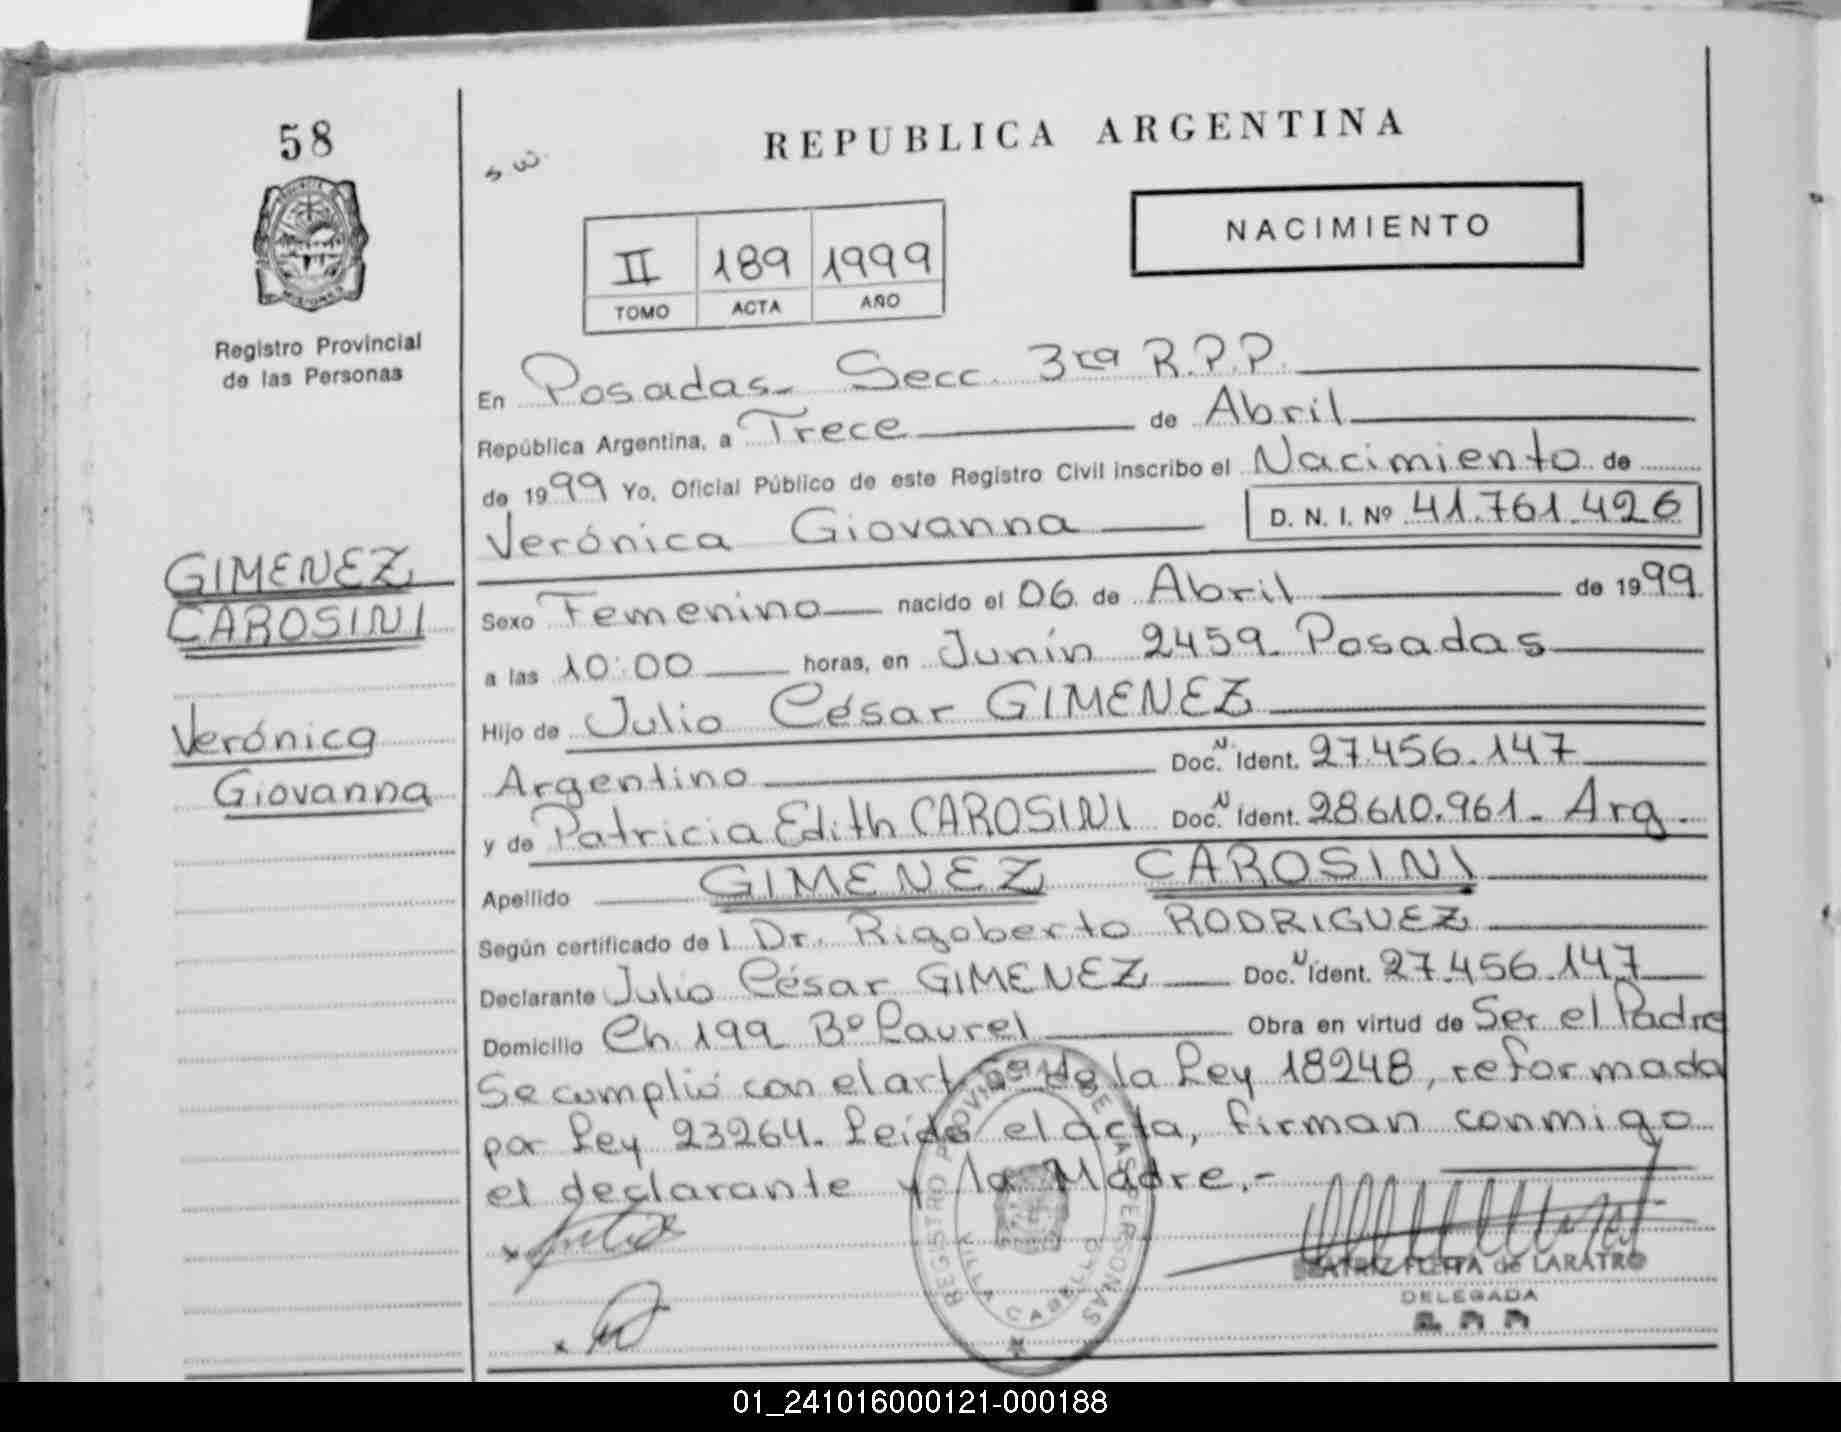 58
REPUBLICA ARGENTINA
NACIMIENTO
II 189 1999
TOMO ACTA AÑO
Registro Provincial
de las Personas
En Posadas- Secc. 3ra R.P.P.
República Argentina, a Trece de Abril
de 1999 Yo, Oficial Público de este Registro Civil inscribo el Nacimiento de
Verónica Giovanna D. N. I. Nº 41.761.426
GIMENEZ
CAROSINI
Verónica
Giovanna
Sexo Femenino nacido el 06 de Abril de 1999
a las 10:00 horas, en Junín 2459- Posadas
Hijo de Julio César GIMENEZ
Argentino Doc. N Ident. 27.456.147
y de Patricia Edith CAROSINI Doc. N Ident. 28.610.961- Arg.
Apellido GIMENEZ CAROSINI
Según certificado de l Dr. Rigoberto RODRIGUEZ
Declarante Julio César GIMENEZ Doc. N Ident. 27.456.147
Domicilio Ch 199 Bº Laurel Obra en virtud de Ser el Padre
Se cumplió con el art de la Ley 18248, reformada
por Ley 23264. Leída el acta, firman conmigo
el declarante y la Madre.-
REGISTRO PROVINCIAL DE LAS PERSONAS
VILLA CABELLO
de LARATRO
DELEGADA
01_241016000121-000188